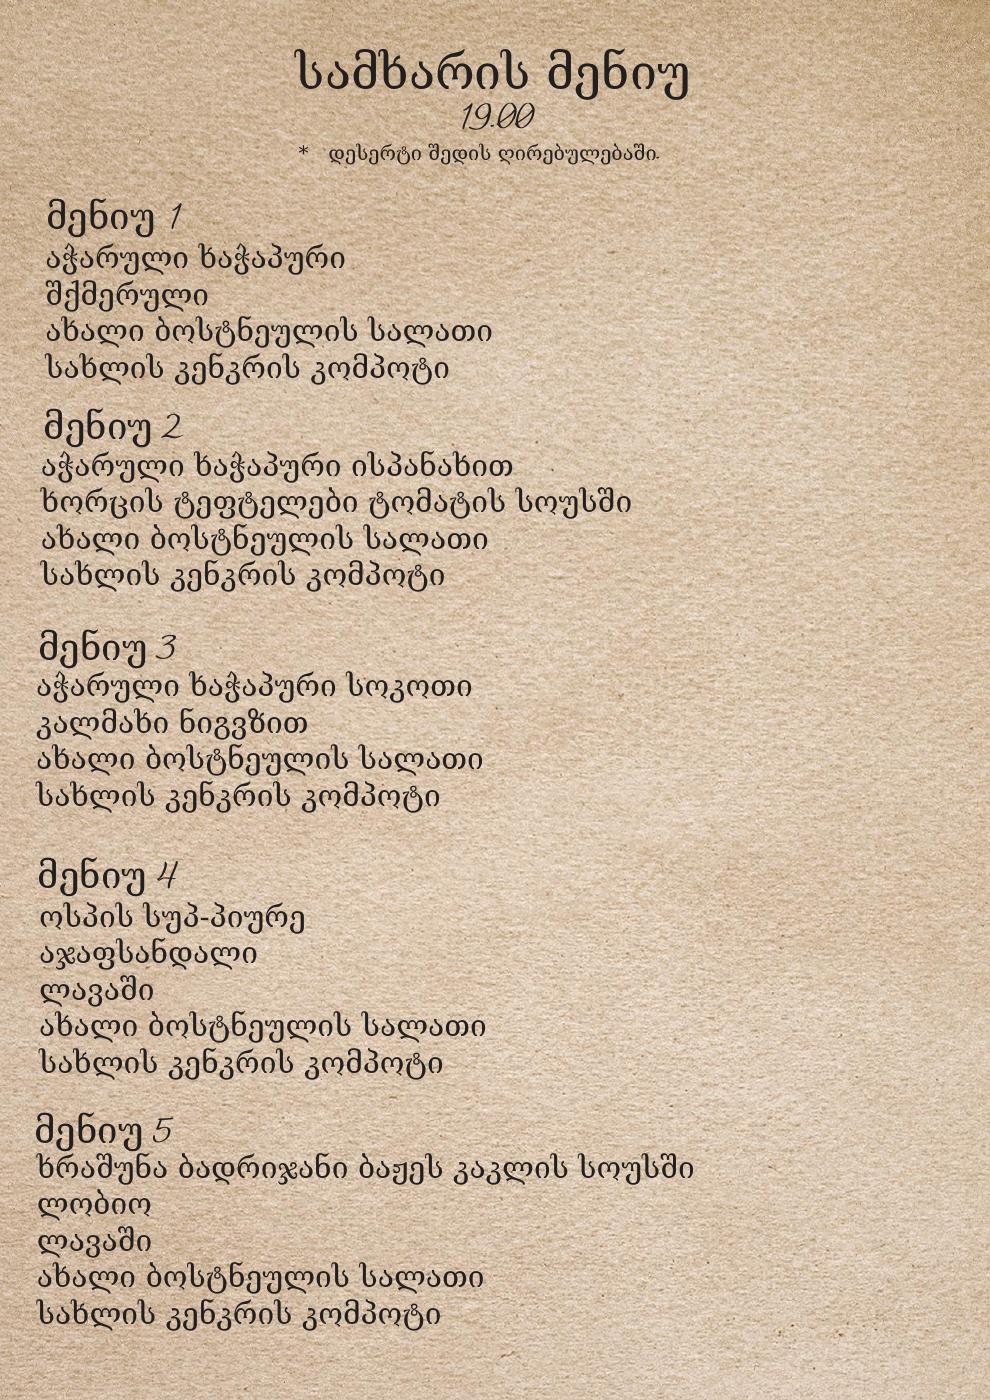 სამხარის მენიუ
19.00
* დესერტი შედის ღირებულებაში.
მენიუ 1
აჭარული ხაჭაპური
შქმერული
ახალი ბოსტნეულის სალათი
სახლის კენკრის კომპოტი
მენიუ 2
აჭარული ხაჭაპური ისპანახით
ხორცის ტეფტელები ტომატის სოუსში
ახალი ბოსტნეულის სალათი
სახლის კენკრის კომპოტი
მენიუ 3
აჭარული ხაჭაპური სოკოთი
კალმახი ნიგვზით
ახალი ბოსტნეულის სალათი
სახლის კენკრის კომპოტი
მენიუ 4
ოსპის სუპ-პიურე
აჯაფსანდალი
ლავაში
ახალი ბოსტნეულის სალათი
სახლის კენკრის კომპოტი
მენიუ 5
ხრაშუნა ბადრიჯანი ბაჟეს კაკლის სოუსში
ლობიო
ლავაში
ახალი ბოსტნეულის სალათი
სახლის კენკრის კომპოტი